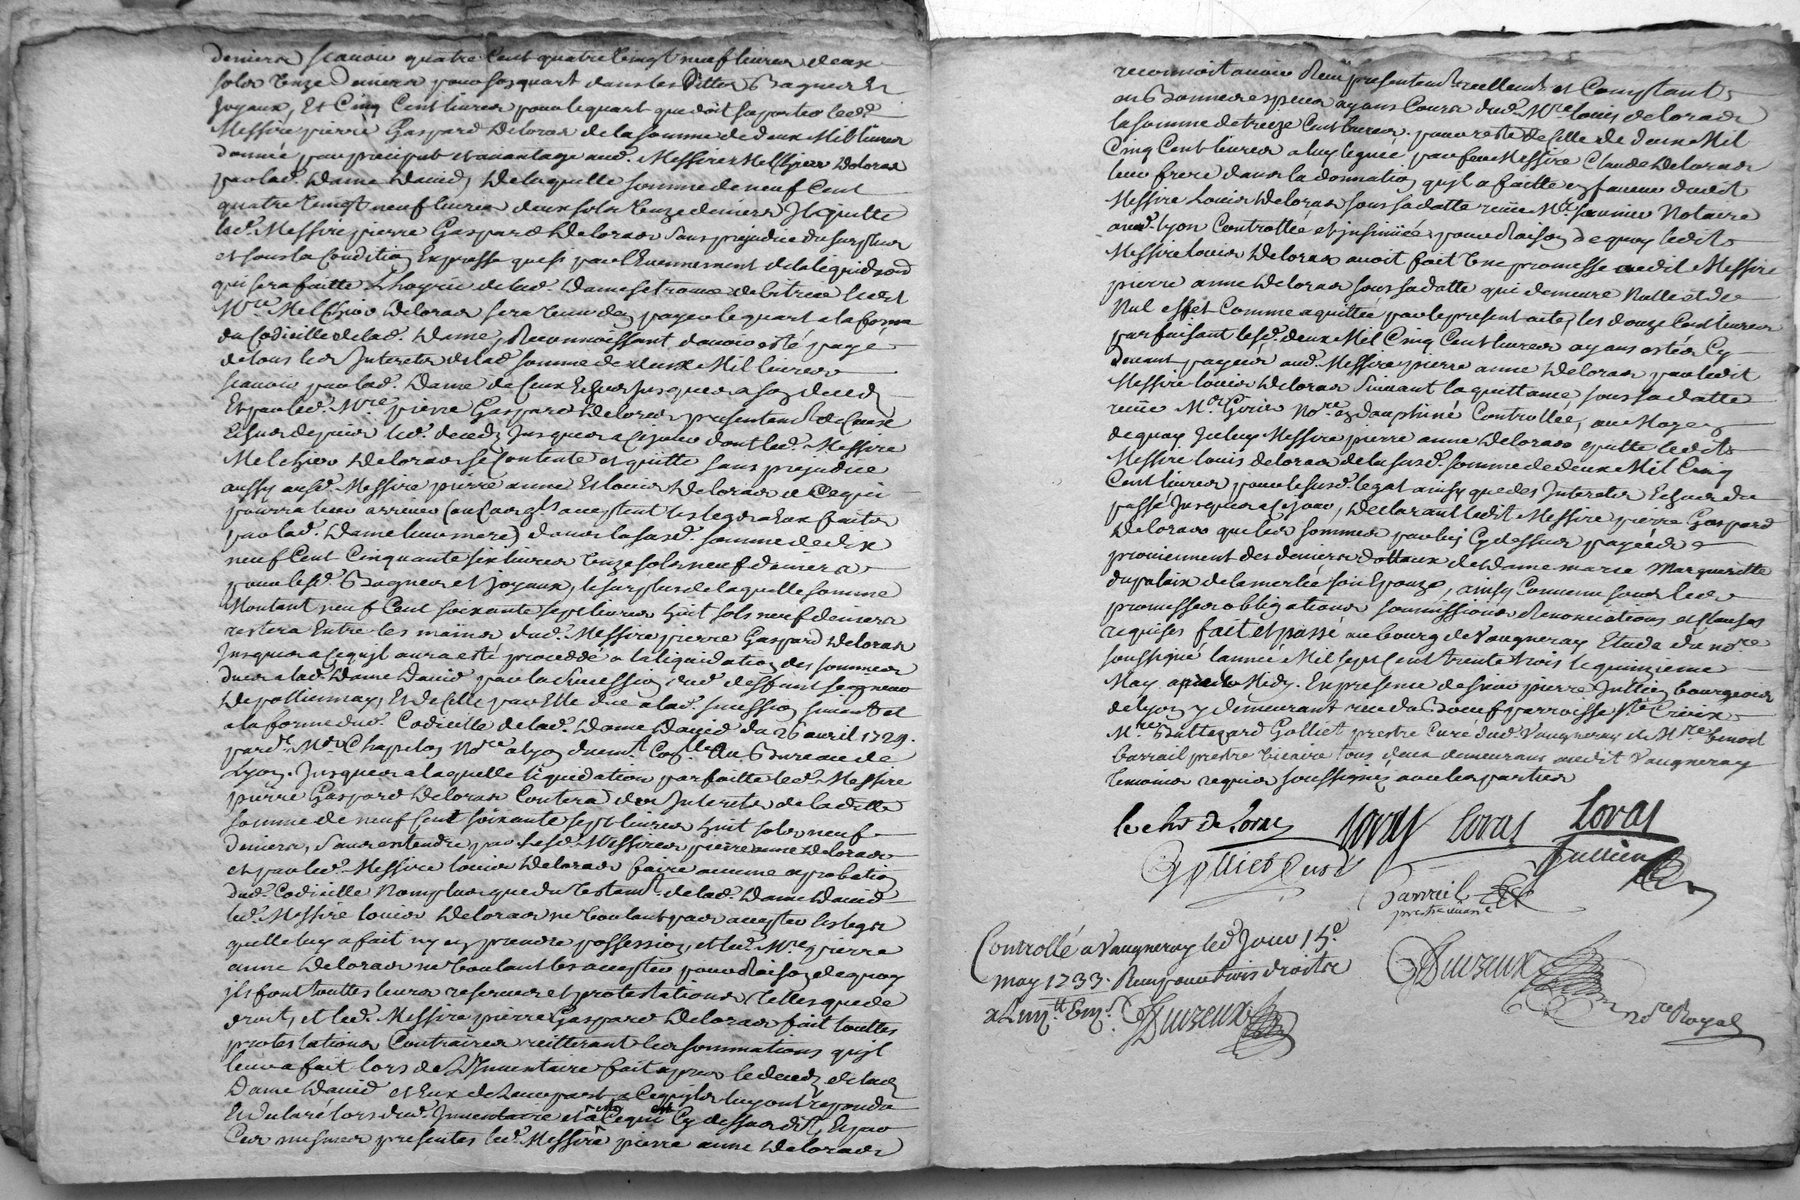 deniers scavoir quatre Cent quatre Vingt neuf livres deux
sols Unze deniers pour son quart dans les Bagues Et
Joyaux, Et Cinq Cent livres pour le quart que doit suporter led.
Messire pierre Gaspard Deloras de la somme de deux Mil livres
donnée par preciput et avantage aud. Messire Melchior Deloras
par lad. Dame David, De laquelle somme de neuf Cent
quatre Vingt neuf livres deux sols Unze deniers Il quitte
led. Messire pierre Gaspard Deloras sans prejudice du surplus
et sous la Condition Expresse que si par l'Evennement de la liquidaon
qui sera faitte L'hoyrie de lad. Dame se trouve debitrice led.
Mre Melchior Deloras sera tenu den payer le quart a la forme
du Codicille de lad. Dame, Reconnoissant d'avoir esté payé
de tous les Interets de lad. somme de deux Mil livres
scavoir par lad. Dame de Ceux Echus Jusques a son deced
Et par led. Mre pierre Gaspard Deloras presentemt de Ceux
Echus depuis led. deced Jusques a ce jour dont led. Messire
Melchior Deloras se Contente et quitte sans prejudice
aussy ausd. Messire pierre anne Et louis Deloras a Ce qui
pourra leur arriver (au Cas qls acceptent les legs a Eux faits
par lad. Dame leur mere) dans la susd. somme de dix
neuf Cent Cinquante six livres Unze sols neuf deniers
pour lesd. Bagues et joyaux, le surplus de laquelle somme
Montant neuf Cent soixante sept livres huit sols neuf deniers
restera Entre les mains dud. Messire pierre Gaspard Deloras
Jusques a ce qu'il aura esté procedé a la liquidation des sommes
dues a lad. Dame David par la succession dud. deffunt seigneur
De pollienay, Et de Celle par Elle due a lad. succession suivant et
a la forme dud. Codicille de lad. Dame David du 26 avril 1729.
par dt Me Chapelas Nore a Lyon duemt Collé au Bureau de
Lyon. Jusques a laquelle liquidation parfaitte led. Messire
pierre Gaspard Deloras Contera des Interets de la ditte
somme de neuf Cent soixante sept livres huit sols neuf
deniers, sans entendre par lesd. Messires pierre anne Deloras
et par led. Messire louis Deloras faire aucune aprobation
dud. Codicille Non plus que du testamt de lad. Dame David
led. Messire louis Deloras ne Voulant pas accepter les legs
quelle luy a fait ny en prendre possession, et led. Mre pierre
anne Deloras ne Voulant les accepter pour Raison de quoy
ils font touttes leurs reserves et protestations telles que de
droit, et led. Messire pierre Gaspard Deloras fait touttes
protestations Contraires reitterant les sommations qu'il
leur a fait lors de L'Inventaire fait apres le deced de lad.
Dame David et Eux de leur part a Ce qu'ils luy ont repondu
Et declaré lors dud. Inventaire et a Ce qui est Cy dessus dit, Et par
Ces mesmes presentes led. Messire pierre anne Deloras
reconnoit avoir Receu presentemt reellemt et Comptant
en Bonnes especes ayans Cours dud. Mre louis deloras
la somme de treize Cent livres. pour reste de Celle de deux Mil
Cinq Cent livres a luy leguée par feu Messire Claude Deloras
leur frere dans la donnation qu'il a faitte en faveur dudit
Messire Louis Deloras sous sa datte reçüe Me Saunier Notaire
aud. lyon Controllée et insinüée, pour Raison de quoy ledit
Messire louis Deloras avoit fait Une promesse audit Messire
pierre anne Deloras sous sa datte qui demeure Nulle et de
Nul effet Comme aquittée par le present acte, les douze Cent livres
parfaisant lesd. deux Mil Cinq Cent livres ayans estés Cy
devant payées aud. Messire pierre anne Deloras par ledit
Messire louis Deloras suivant la quittance sous sa datte
reçüe Me Nore en dauphiné Controllée, au Moyen
de quoy Iceluy Messire pierre anne Deloras quitte ledit
Messire louis deloras de la susd. somme de deux Mil Cinq
Cent livres pour le susd. legat ainsy que des Interets Echus du
passé Jusques a ce jour, Declarant ledit Messire pierre Gaspard
Deloras que les sommes par luy Cy dessus payées
proviennent des deniers dottaux de Dame marie Margueritte
dupalaix de lamerlée son Epouse, ainsy Convenu sous les
promesses obligations soumissions Renonciations et Clauses
requises fait et passé au bourg de Vaugneray Etude du nore
soussigné l'année Mil sept Cent trente trois le quinzieme
May apres Midy. En presence de sieur pierre Jullien bourgeois
de lyon y demeurant rue du Boeuf parroisse Ste Croix
Mre Baltezard Golliet prestre Curé dud. Vaugneray et Mre benoit
barrail prestre Vicaire tous deux demeurans audit Vaugneray
temoins requis soussignez avec les parties
le chr de Loras Loras loras Loras
Golliet Curé Jullien
Barrail
prestre vicaire
Controllé a Vaugneray led. Jour 15e
may 1733. Receu pour trois droits
Duvzeux
Duvzeux
nore Royal